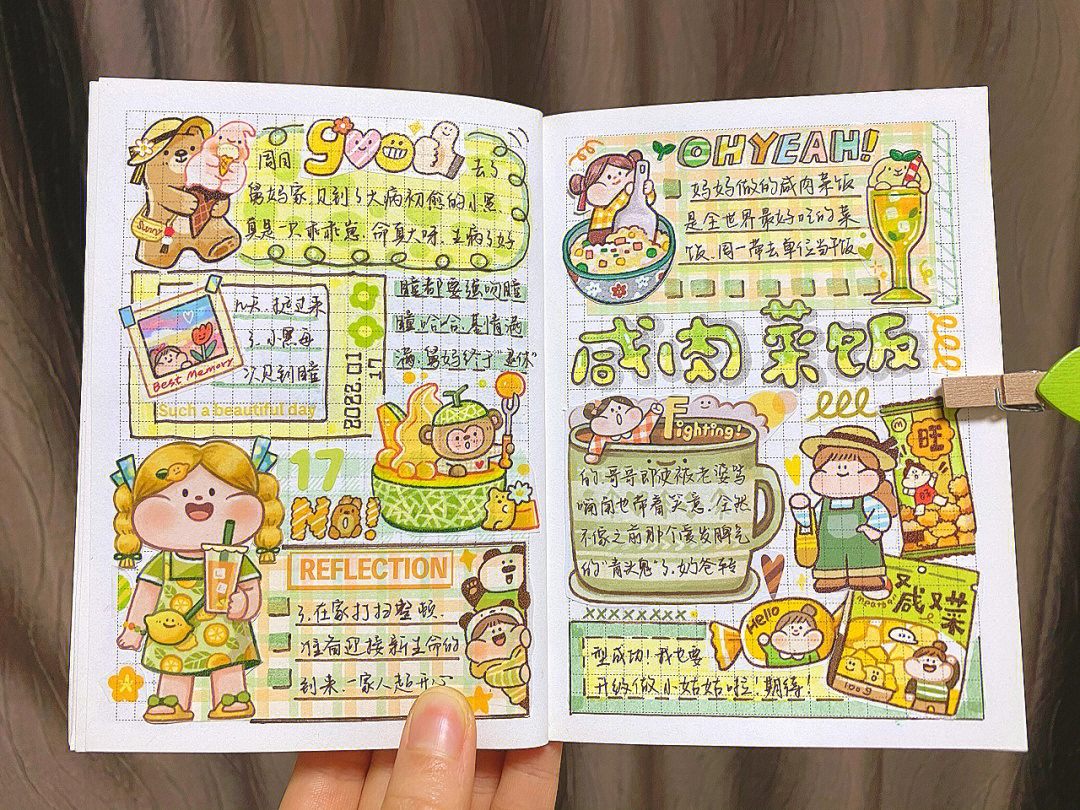 good
周日 去了
舅妈家,见到了大病初愈的小黑.
真是一只乖乖崽.命真大呀.生病了好
几天.挺过来
了.小黑每
次见到瞳
Best Memory
Sunny
Such a beautiful day
2022.01
17
瞳都要强吻瞳
瞳哈哈.基情满
满.舅妈终于“退休”
17
NO!
REFLECTION
了.在家打扫整顿.
准备迎接新生命的
到来.一家人超开心
OH YEAH!
妈妈做的咸肉菜饭
是全世界最好吃的菜
饭.周一带去单位当午饭
咸肉菜饭
Fighting!
的哥哥即使被老婆骂
嘴角也带着笑意.全然
不像之前那个爱发脾气
的“青头鬼”了.奶爸转
型成功!我也要
升级做小姑姑啦!期待!
旺
旺
Hello
咸又菜
100g